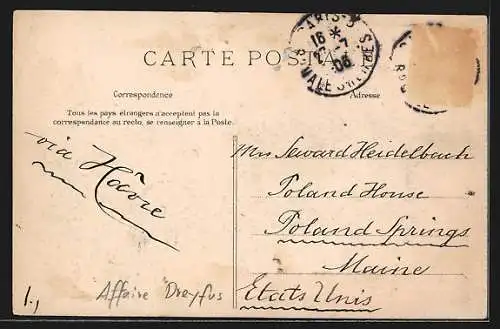 PARIS-3
16 *
27-7
06
R. MALESHERBES
CARTE POSTALE
Correspondance
Adresse
Tous les pays étrangers n'acceptent pas la
correspondance au recto, se renseigner à la Poste.
via Hâvre
Mrs Seward Heidelbach
Poland House
Poland Springs
Maine
Etats Unis
1.,
Affaire Dreyfus